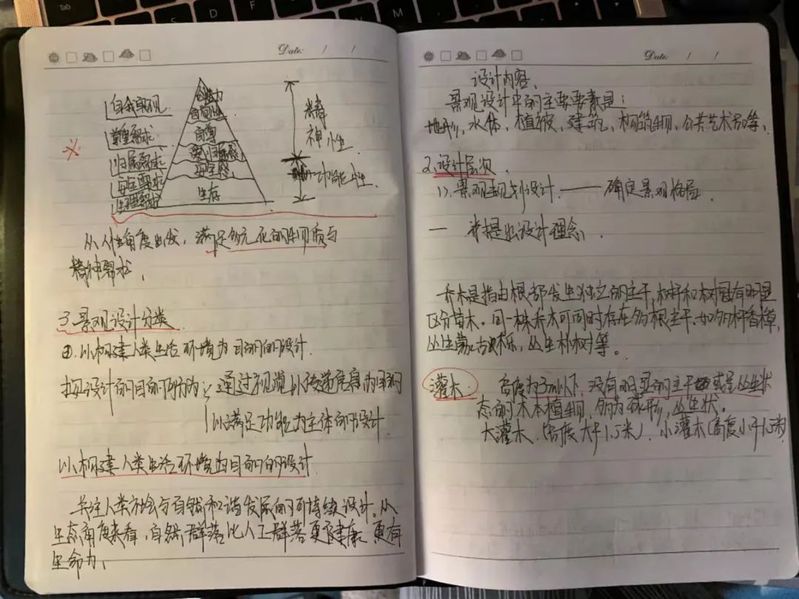 Date: / /
自我实现
尊重需求
归属需求
安全需求
生理需求
生存
精
神
性
功能性
从人性角度出发，满足多元化的物质与
精神需求、
3.景观设计分类
①.以构建人类生活环境为目的的设计.
按设计的目的可分为：通过视觉以传递度为目的
以满足功能为主体的设计
以构建人类生活环境为目的的设计
关注人类社会与自然和谐发展的可持续设计.从
生态角度来看，自然群落比人工群落更健康，更有
生命力、
Date: / /
设计内容、
景观设计中的主要要素是：
地形，水体，植被，建筑，构筑物，公共艺术品等、
2.设计层次
1).景观规划设计.——确定景观格局.
— 并提出设计理念.
乔木是指由根部发生独立的主干，树杆和树冠有明显
区分苗木.同一株乔木可同时存在多根主干.如多杆香樟，
丛生蒙古栎，丛生朴树等.
灌木：高度为3m以下，没有明显的主干或呈丛生状
态的木本植物，多为球形，丛生状。
大灌木.(高度大于1.5米).小灌木(高度小于1.5米)